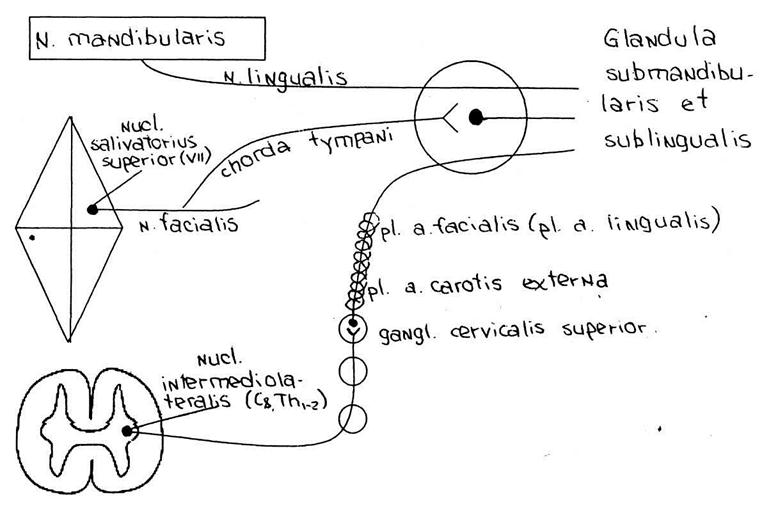 N. mandibularis
N. lingualis
Glandula
submandibu-
laris et
sublingualis
Nucl.
salivatorius
superior (VII)
chorda tympani
N. facialis
pl. a. facialis (pl. a. lingualis)
pl. a. carotis externa
gangl. cervicalis superior.
Nucl.
intermediola-
teralis (C8, Th1-2)